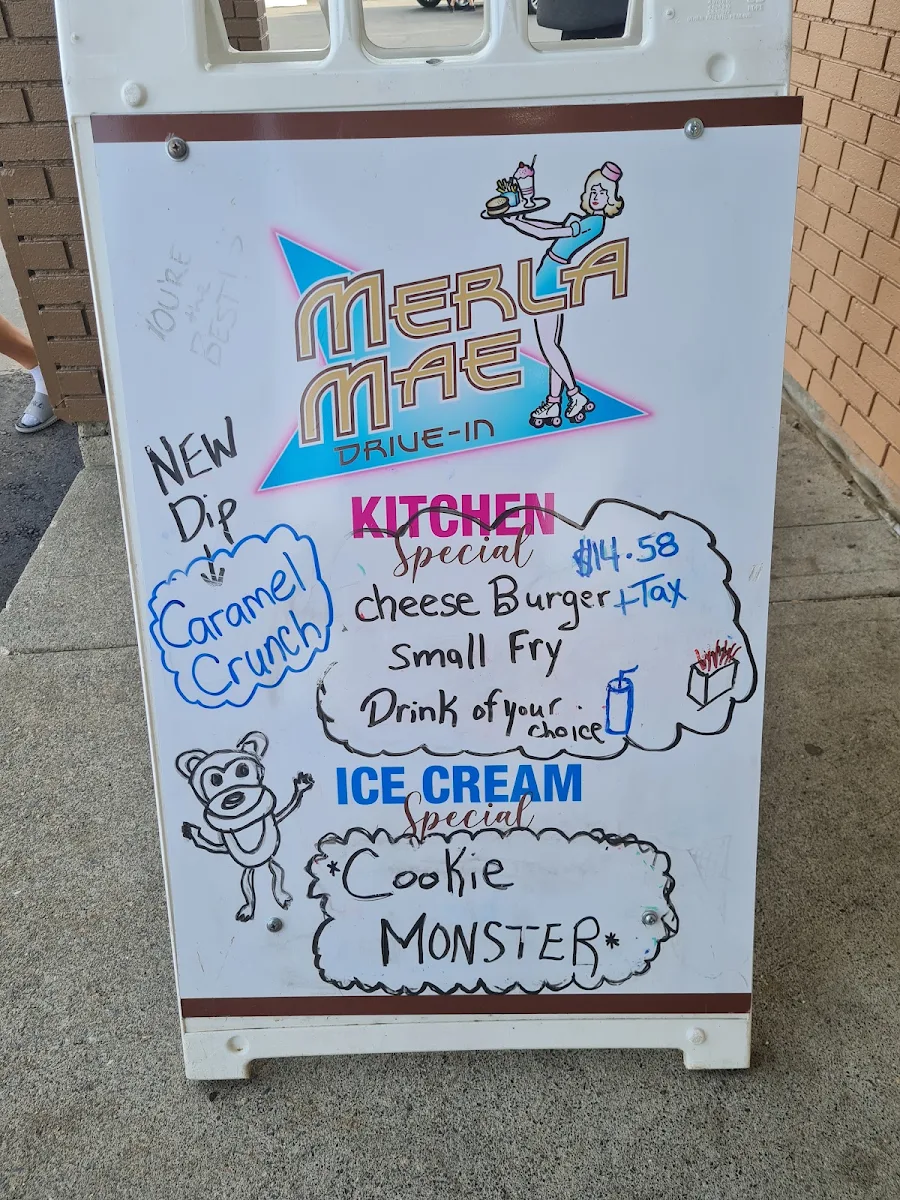 YOU'RE
the
BEST!
MERLA
MAE
DRIVE-IN
NEW
Dip
Caramel
Crunch
KITCHEN
Special
$14.58
+Tax
cheese Burger
small Fry
Drink of your
choice
ICE CREAM
Special
*Cookie
MONSTER*